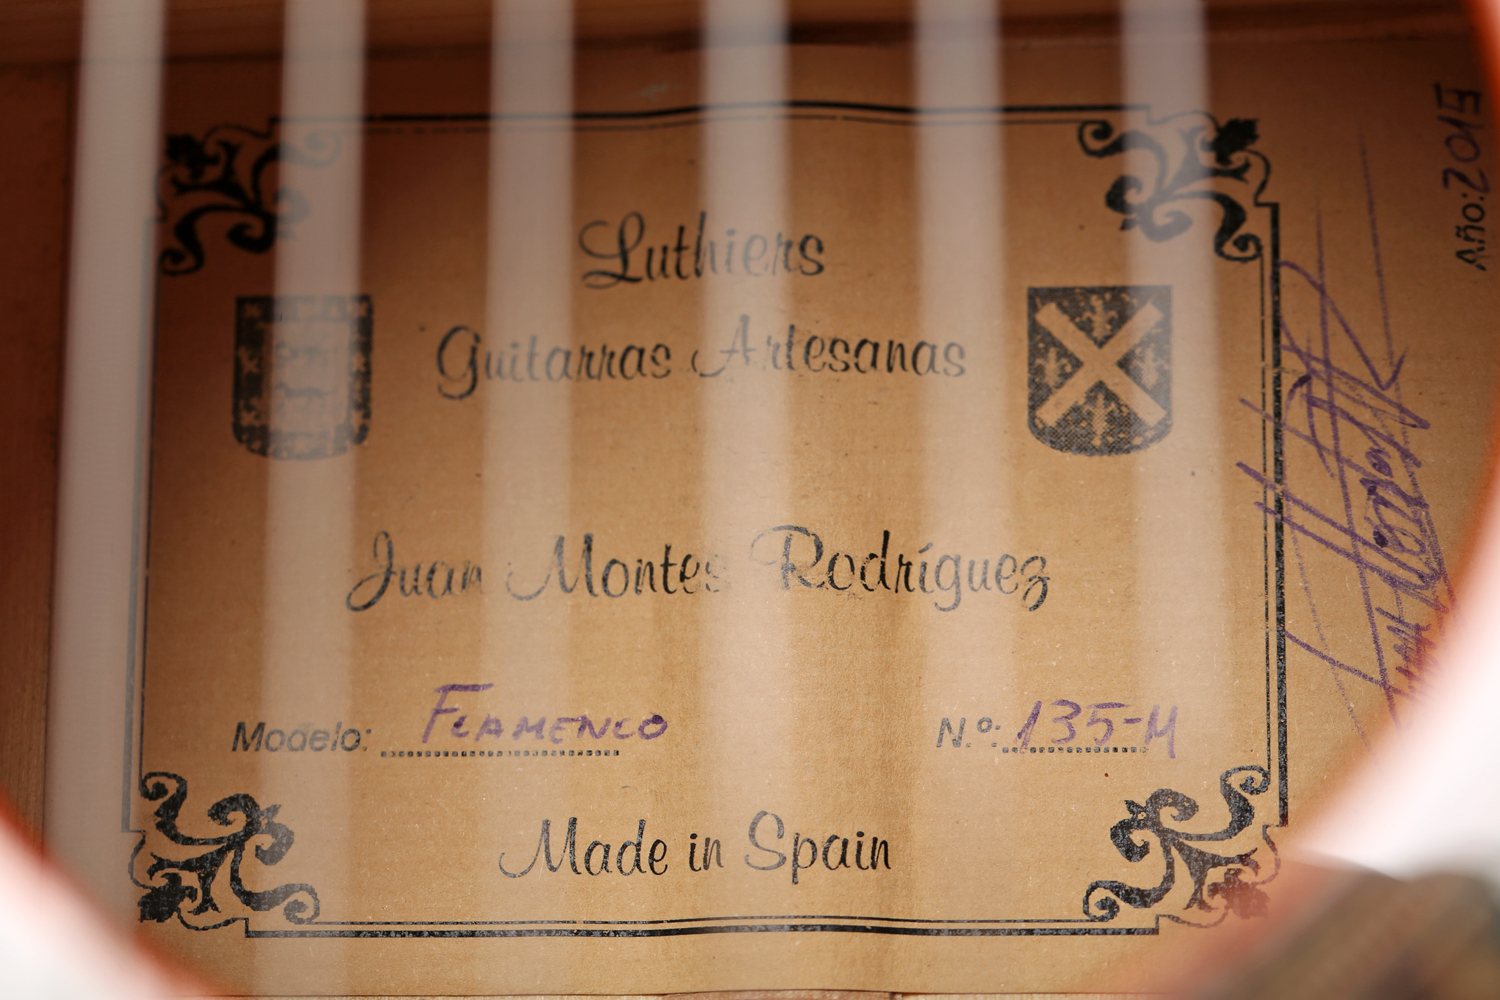 Luthiers
Guitarras Artesanas
Juan Montes Rodríguez
Modelo: FLAMENCO
N.º: 135-M
Made in Spain